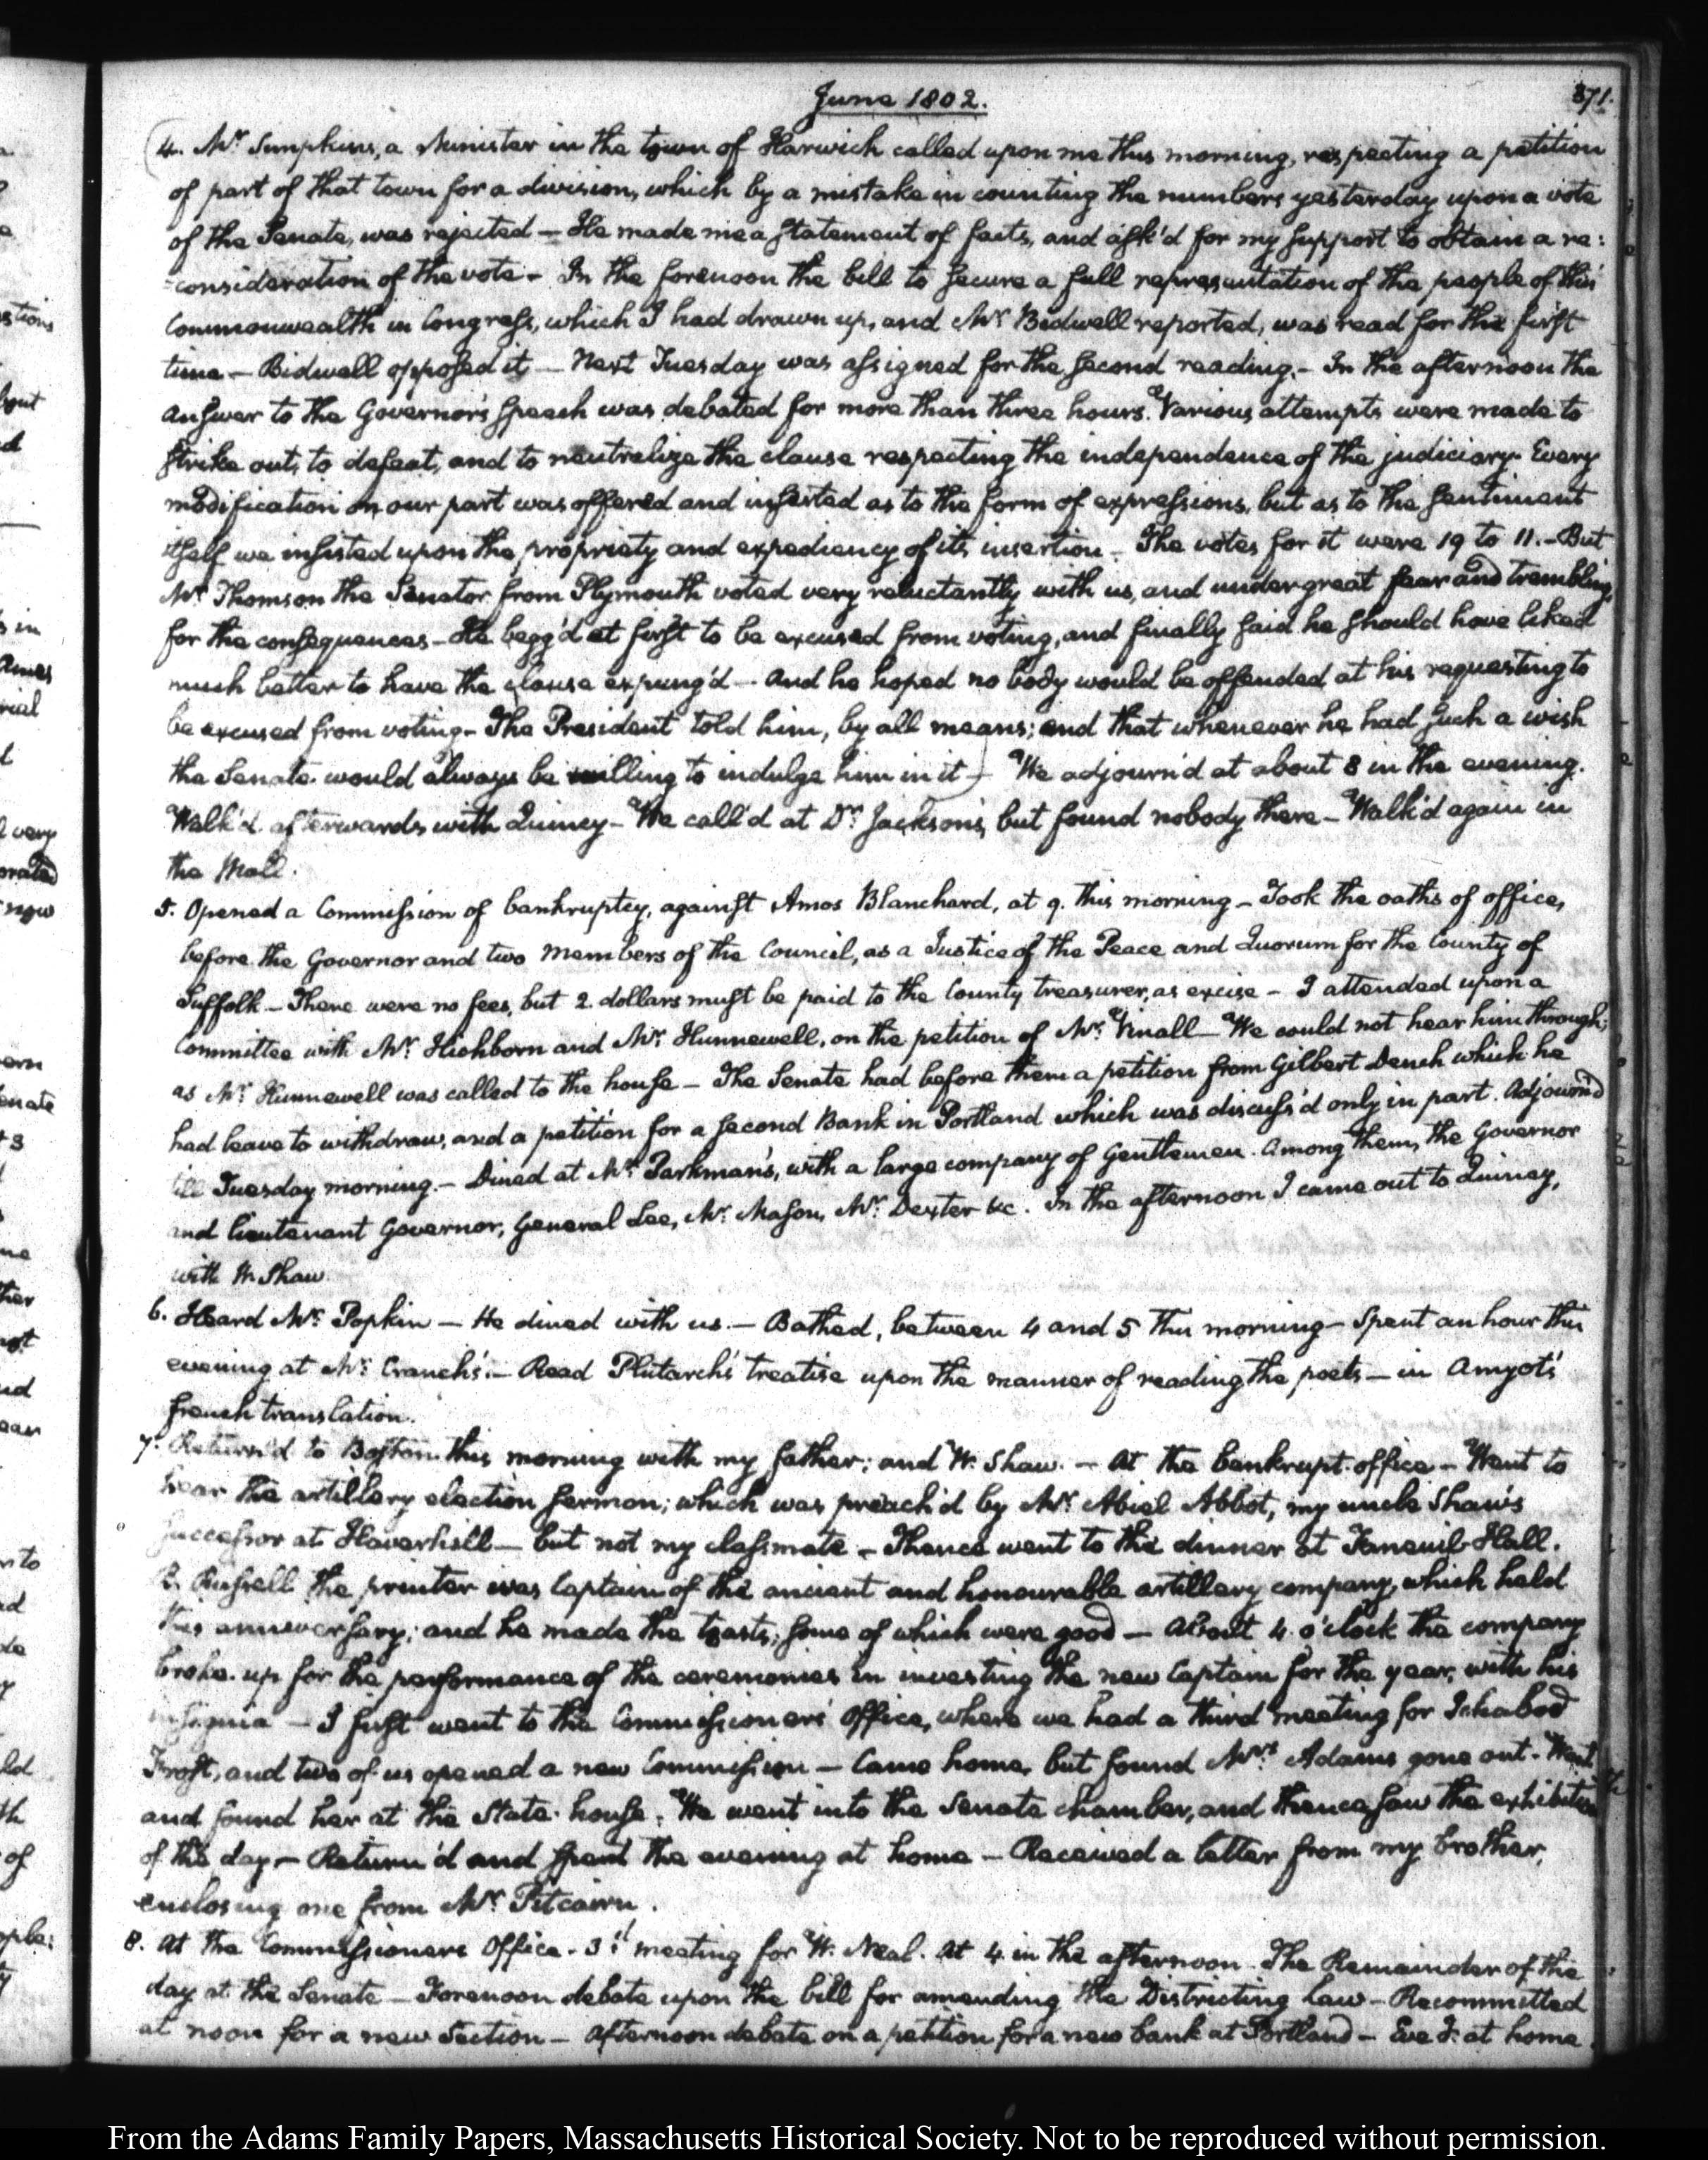 June 1802.
371.
4. Mr Simpkins, a Minister in the town of Harwich called upon me this morning, respecting a petition
of part of that town for a division, which by a mistake in counting the numbers yesterday upon a vote
of the Senate, was rejected — He made me a statement of facts, and ask'd for my support to obtain a re:
=consideration of the vote — In the forenoon the bill to secure a full representation of the people of this
Commonwealth in Congress, which I had drawn up, and Mr Bidwell reported, was read for the first
time — Bidwell opposed it — Next Tuesday was assigned for the second reading. — In the afternoon the
answer to the Governor's speech was debated for more than three hours. Various attempts were made to
strike out, to defeat, and to neutralize the clause respecting the independence of the judiciary. Every
modification on our part was offered and inserted as to the form of expressions, but as to the sentiment
itself we insisted upon the propriety and expediency of its insertion — The votes for it were 19 to 11. — But
Mr Thomson the Senator from Plymouth voted very reluctantly with us, and under great fear and trembling,
for the consequences — He begg'd at first to be excused from voting, and finally said he should have liked
much better to have the clause expung'd — And he hoped no body would be offended at his requesting to
be excused from voting — The President told him, by all means; and that whenever he had such a wish
the Senate would always be willing to indulge him in it —) We adjourn'd at about 8 in the evening.
Walk'd afterwards with Quincy — We call'd at Dr Jackson's, but found nobody there — Walk'd again in
the Mall.
5. Opened a Commission of bankruptcy, against Amos Blanchard, at 9. this morning — Took the oaths of office,
before the Governor and two Members of the Council, as a Justice of the Peace and Quorum for the County of
Suffolk — There were no fees, but 2. dollars must be paid to the County treasurer, as excise — I attended upon a
Committee with Mr Hichborn and Mr Hunnewell, on the petition of Mr Vinall — We could not hear him through;
as Mr Hunnewell was called to the house — The Senate had before them a petition from Gilbert Dench which he
had leave to withdraw, and a petition for a second Bank in Portland which was discuss'd only in part. Adjourn'd
till Tuesday morning. — Dined at Mr Parkman's, with a large company of Gentlemen. Among them, the Governor
and lieutenant Governor, General Lee, Mr Mason, Mr Dexter &c. In the afternoon I came out to Quincy,
with W. Shaw.
6. Heard Mr Popkin — He dined with us. — Bathed, between 4 and 5 this morning — Spent an hour this
evening at Mr Cranch's. — Read Plutarch's treatise upon the manner of reading the poets — in Amyot's
french translation.
7. Return'd to Boston this morning with my father; and W. Shaw. — At the bankrupt office — Went to
hear the artillery election sermon; which was preach'd by Mr Abiel Abbot, my uncle Shaw's
successor at Haverhill — but not my classmate — Thence went to the dinner at Faneuil-Hall.
B. Russell the printer was Captain of the ancient and honourable artillery company, which held
this anniversary; and he made the toasts; some of which were good — About 4. o'clock the company
broke up for the performance of the ceremonies in investing the new Captain for the year, with his
insignia — I first went to the Commissioners' Office, where we had a third meeting for Ichabod
Frost, and two of us opened a new Commission — Came home, but found Mrs Adams gone out. Went
and found her at the State-house. We went into the Senate chamber, and thence saw the exhibition
of the day — Return'd and spent the evening at home — Received a letter from my brother,
enclosing one from Mr Pitcairn.
8. At the Commissioners Office. 3d meeting for W. Neal. At 4 in the afternoon. The Remainder of the
day at the Senate — Forenoon debate upon the bill for amending the Districting Law — Recommitted
at noon for a new Section — Afternoon debate on a petition for a new bank at Portland — Eve g. at home.
From the Adams Family Papers, Massachusetts Historical Society. Not to be reproduced without permission.